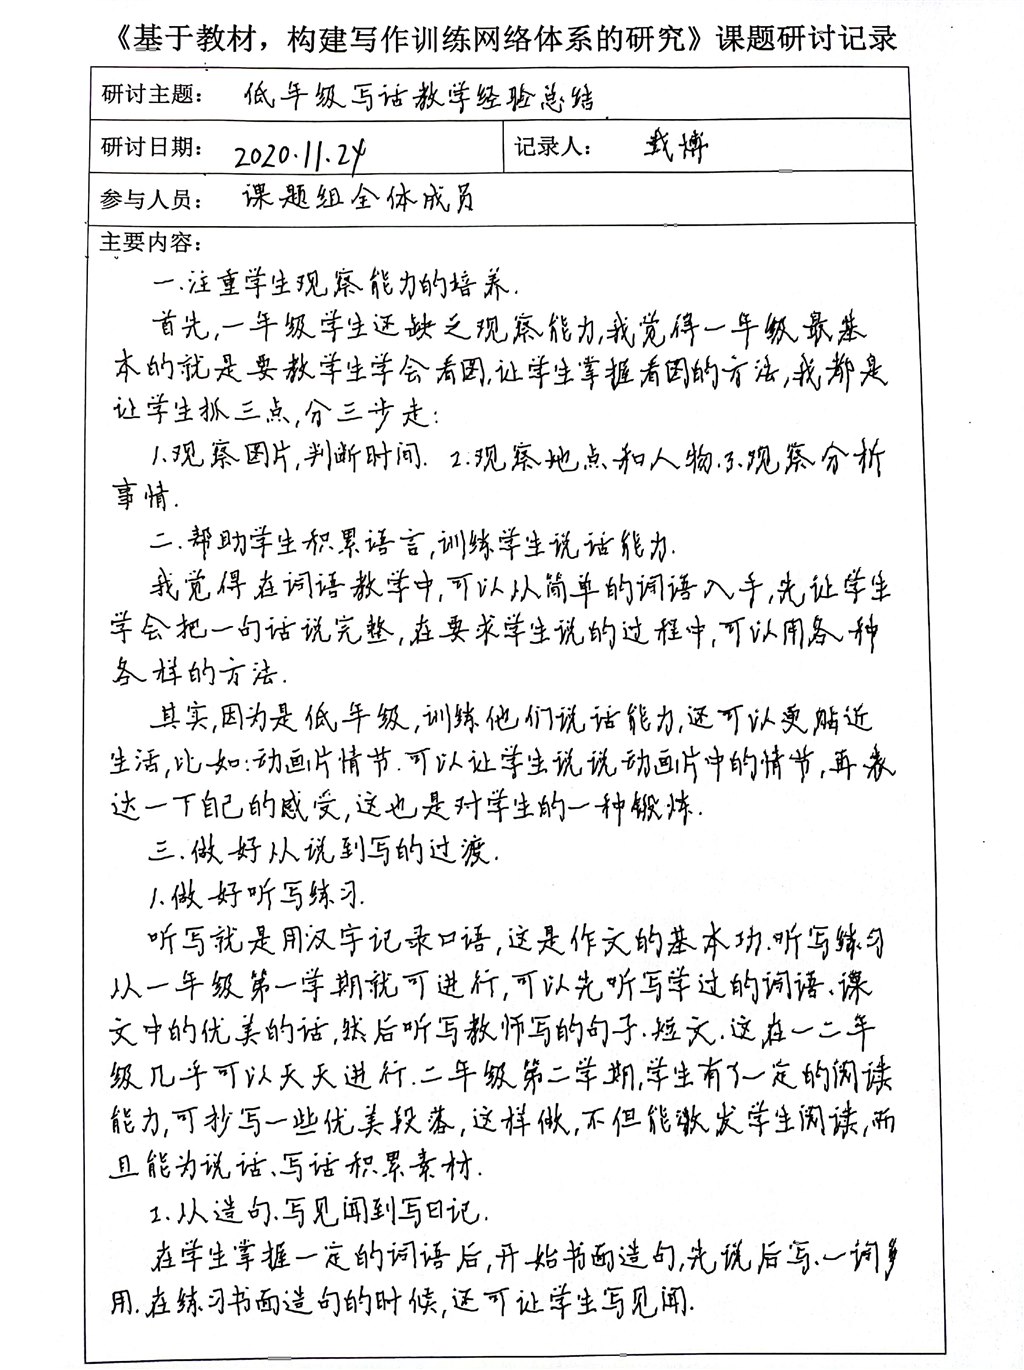 《基于教材，构建写作训练网络体系的研究》课题研讨记录
研讨主题： 低年级写话教学经验总结
研讨日期： 2020.11.24 记录人： 戴博
参与人员： 课题组全体成员
主要内容：
一.注重学生观察能力的培养.
首先,一年级学生还缺乏观察能力,我觉得一年级最基
本的就是要教学生学会看图,让学生掌握看图的方法,我都是
让学生抓三点,分三步走:
1.观察图片,判断时间. 2.观察地点和人物.3.观察分析
事情.
二.帮助学生积累语言,训练学生说话能力.
我觉得在词语教学中,可以从简单的词语入手,先让学生
学会把一句话说完整,在要求学生说的过程中,可以用各种
各样的方法.
其实,因为是低年级,训练他们说话能力,还可以更贴近
生活,比如:动画片情节.可以让学生说说动画片中的情节,再表
达一下自己的感受,这也是对学生的一种锻炼.
三.做好从说到写的过渡.
1.做好听写练习.
听写就是用汉字记录口语,这是作文的基本功.听写练习
从一年级第一学期就可进行,可以先听写学过的词语、课
文中的优美的话,然后听写教师写的句子.短文.这,在一二年
级几乎可以天天进行.二年级第二学期,学生有了一定的阅读
能力,可抄写一些优美段落,这样做,不但能激发学生阅读,而
且能为说话、写话积累素材.
2.从造句.写见闻到写日记.
在学生掌握一定的词语后,开始书面造句,先说后写.一词多
用.在练习书面造句的时候,还可让学生写见闻.